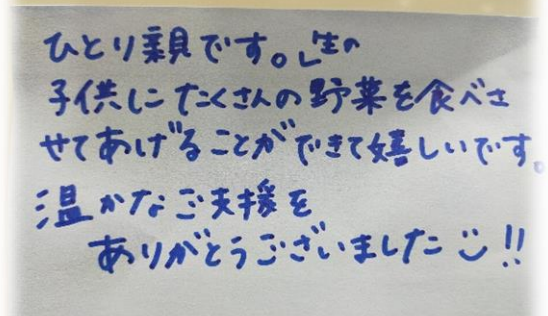 ひとり親です。生の
子供にたくさんの野菜を食べさ
せてあげることができて嬉しいです。
温かなご支援を
ありがとうございました!!